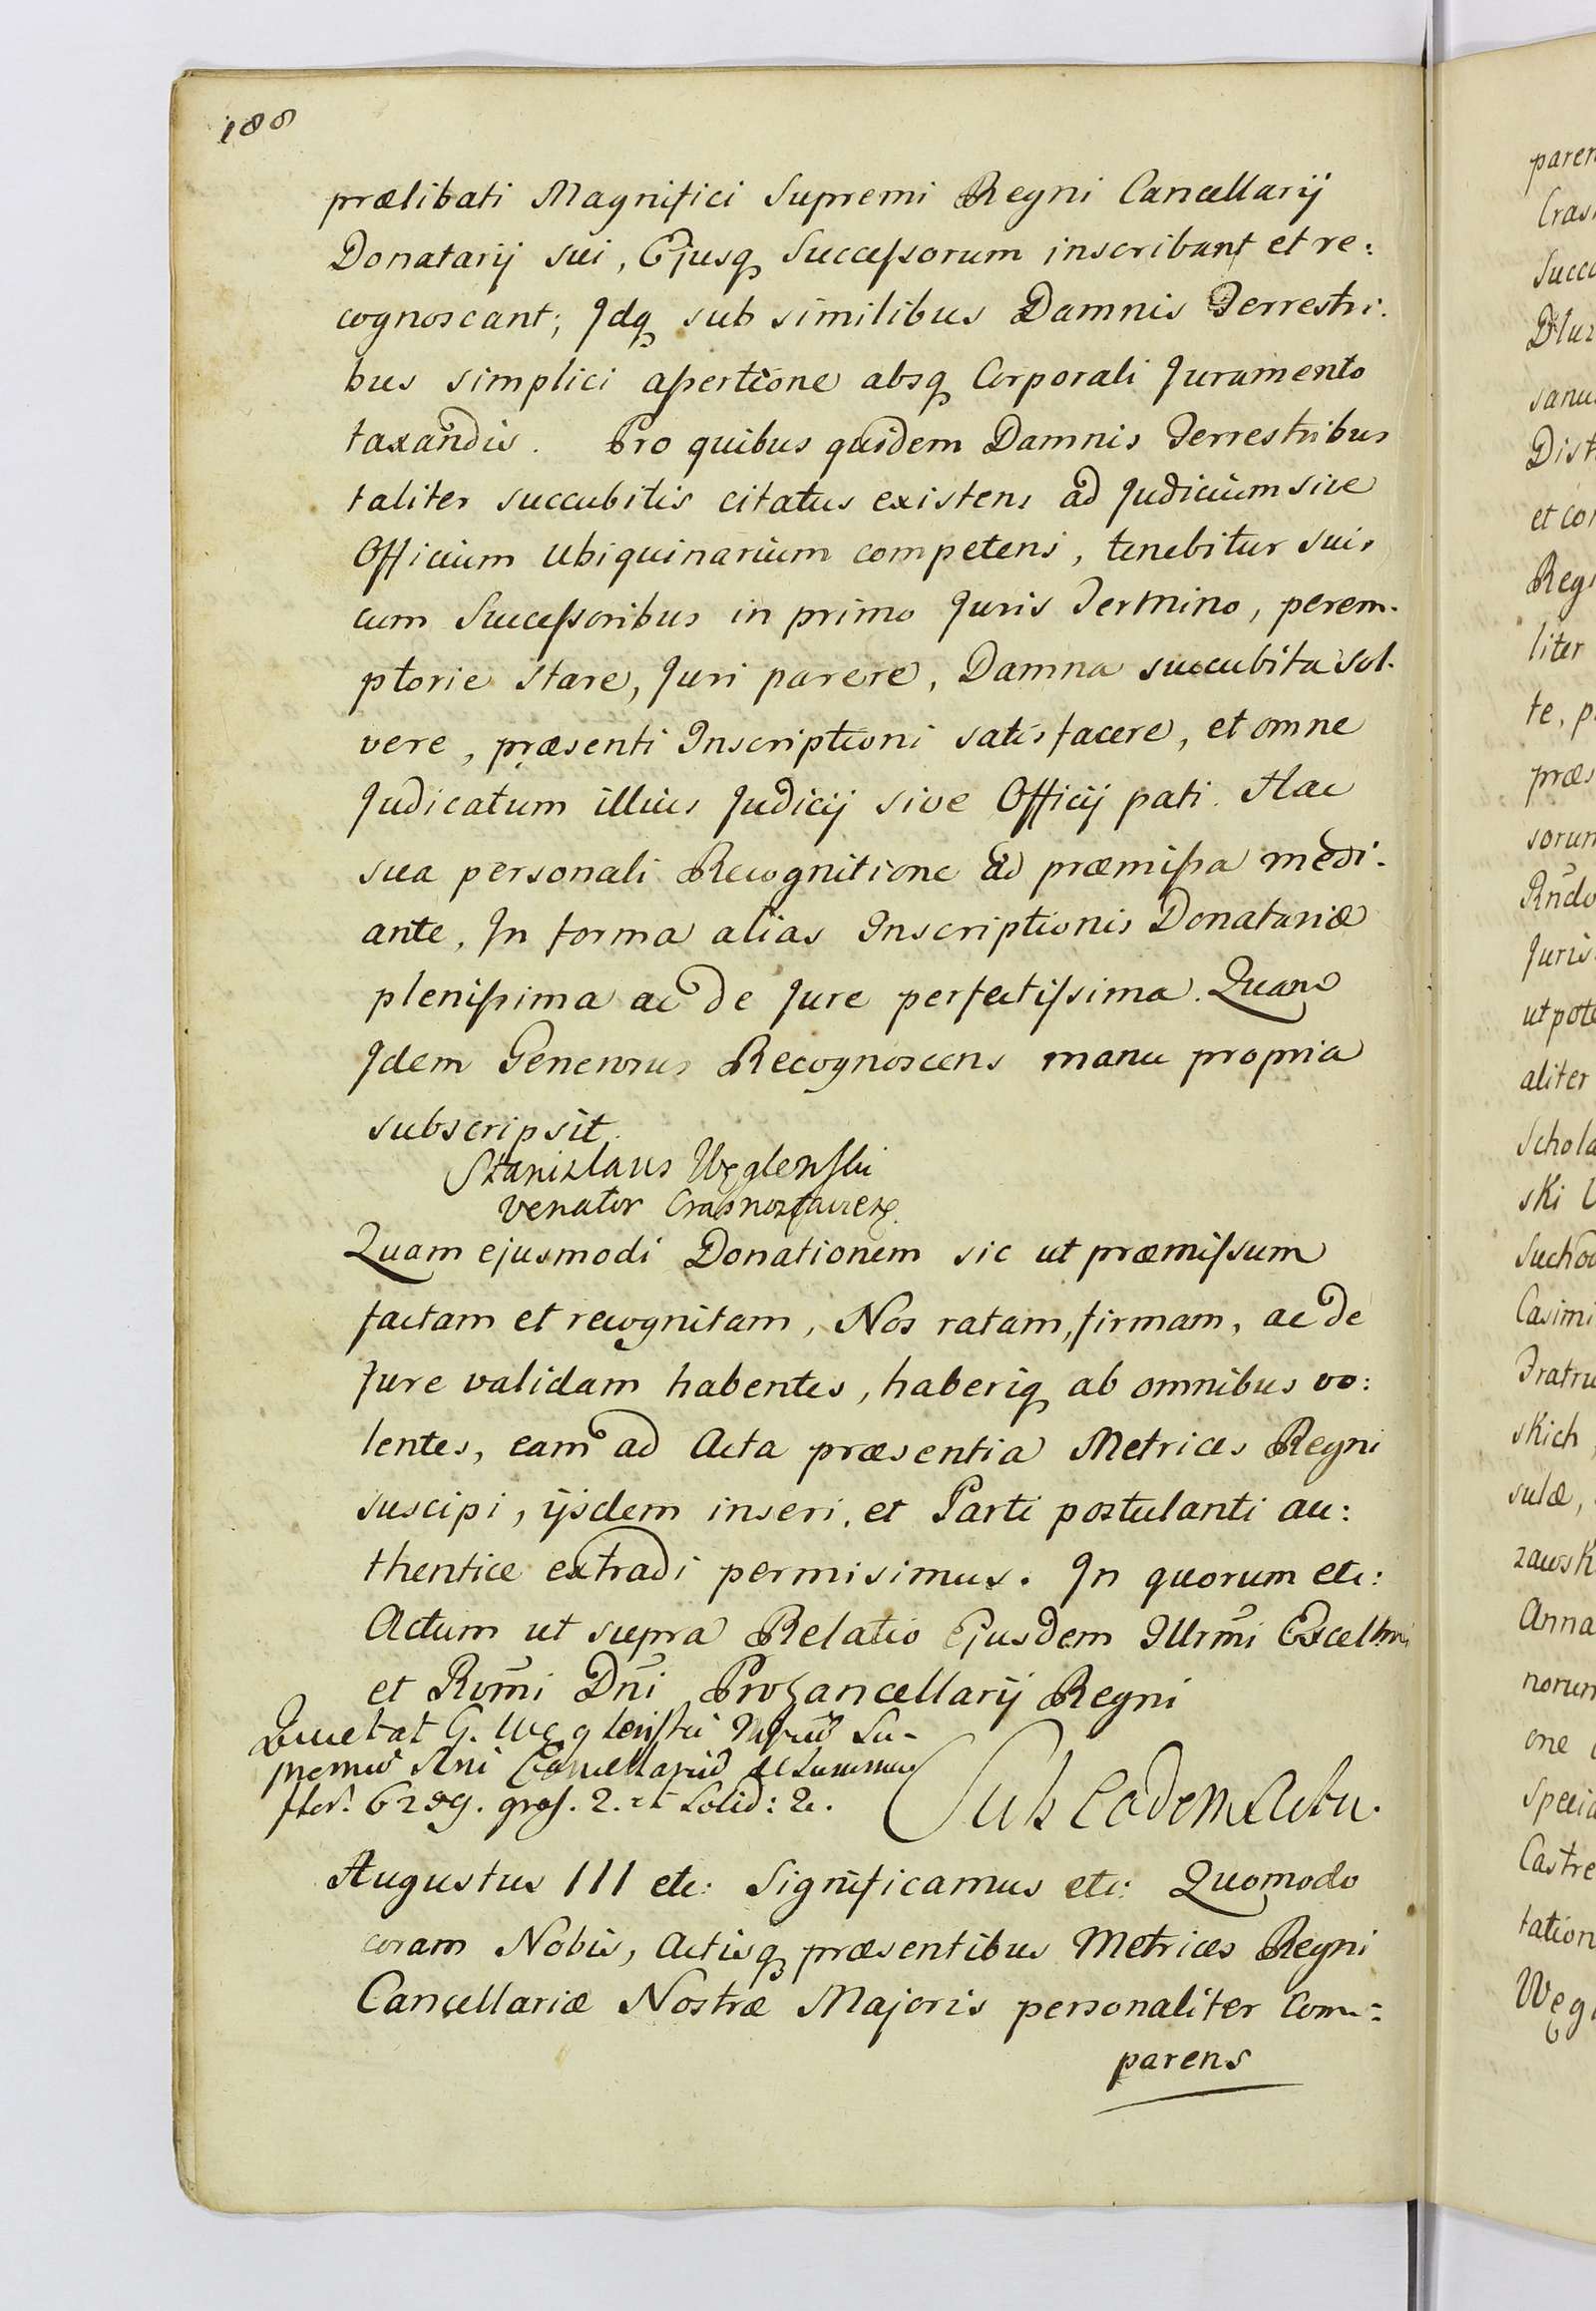 188
prælibati Magnifici Supremi Regni Cancellarij
Donatarij sui, Ejusq Successorum inscribant et re:
cognoscant; Idq sub similibus Damnis Terrestri:
bus simplici assertione absq Corporali Juramento
taxandis. Pro quibus quidem Damnis Terrestribus
taliter succubitis citatus existens ad Judicium sive
Officium Ubiquinarium competens, tenebitur suis
cum Successoribus in primo Juris Termino, perem-
ptorie stare, Juri parere, Damna succubita sol-
vere, præsenti Inscriptioni satisfacere, et omne
Judicatum illius Judicij sive Officij pati. Hac
sua personali Recognitione ad præmissa medi-
ante, In forma alias Inscriptionis Donatariæ
plenissima ac de Jure perfectissima. Quam
Idem Generosus Recognoscens manu propria
subscripsit.
Stanizlaus Węglenski
Venator Crasnostavien
Quam ejusmodi Donationem sic ut præmissum
factam et recognitam, Nos ratam, firmam, ac de
Jure validam habentes, haberiq ab omnibus vo:
lentes, eam ad Acta præsentia Metrices Regni
suscipi, ijsdem inseri, et Parti postulanti au:
thentice extradi permisimus. In quorum etc:
Actum ut supra Relatio Ejusdem Illrmi Excellmi
et Rdmi Dni Procancellarij Regni
Quietat G. Węglenski
premũ Rni Cancellariũ de summa
flor. gros. 2. et Solid: 2.
Sub eadem Actu.
Augustus III etc: Significamus etc: Quomodo
coram Nobis, Actisq præsentibus Metrices Regni
Cancellariæ Nostræ Majoris personaliter Com:
parens
paren
Cras
Succe
Dluz
sanu
Dist
et con
Reg
liter
te, p
præs
sorum
Rndo
Juris
ut pote
aliter
Schola
ski
Sucho
Casimi
Fratru
skich
sulæ,
zawsk
Anna
norum
one
Specia
Castre
tation
Węg